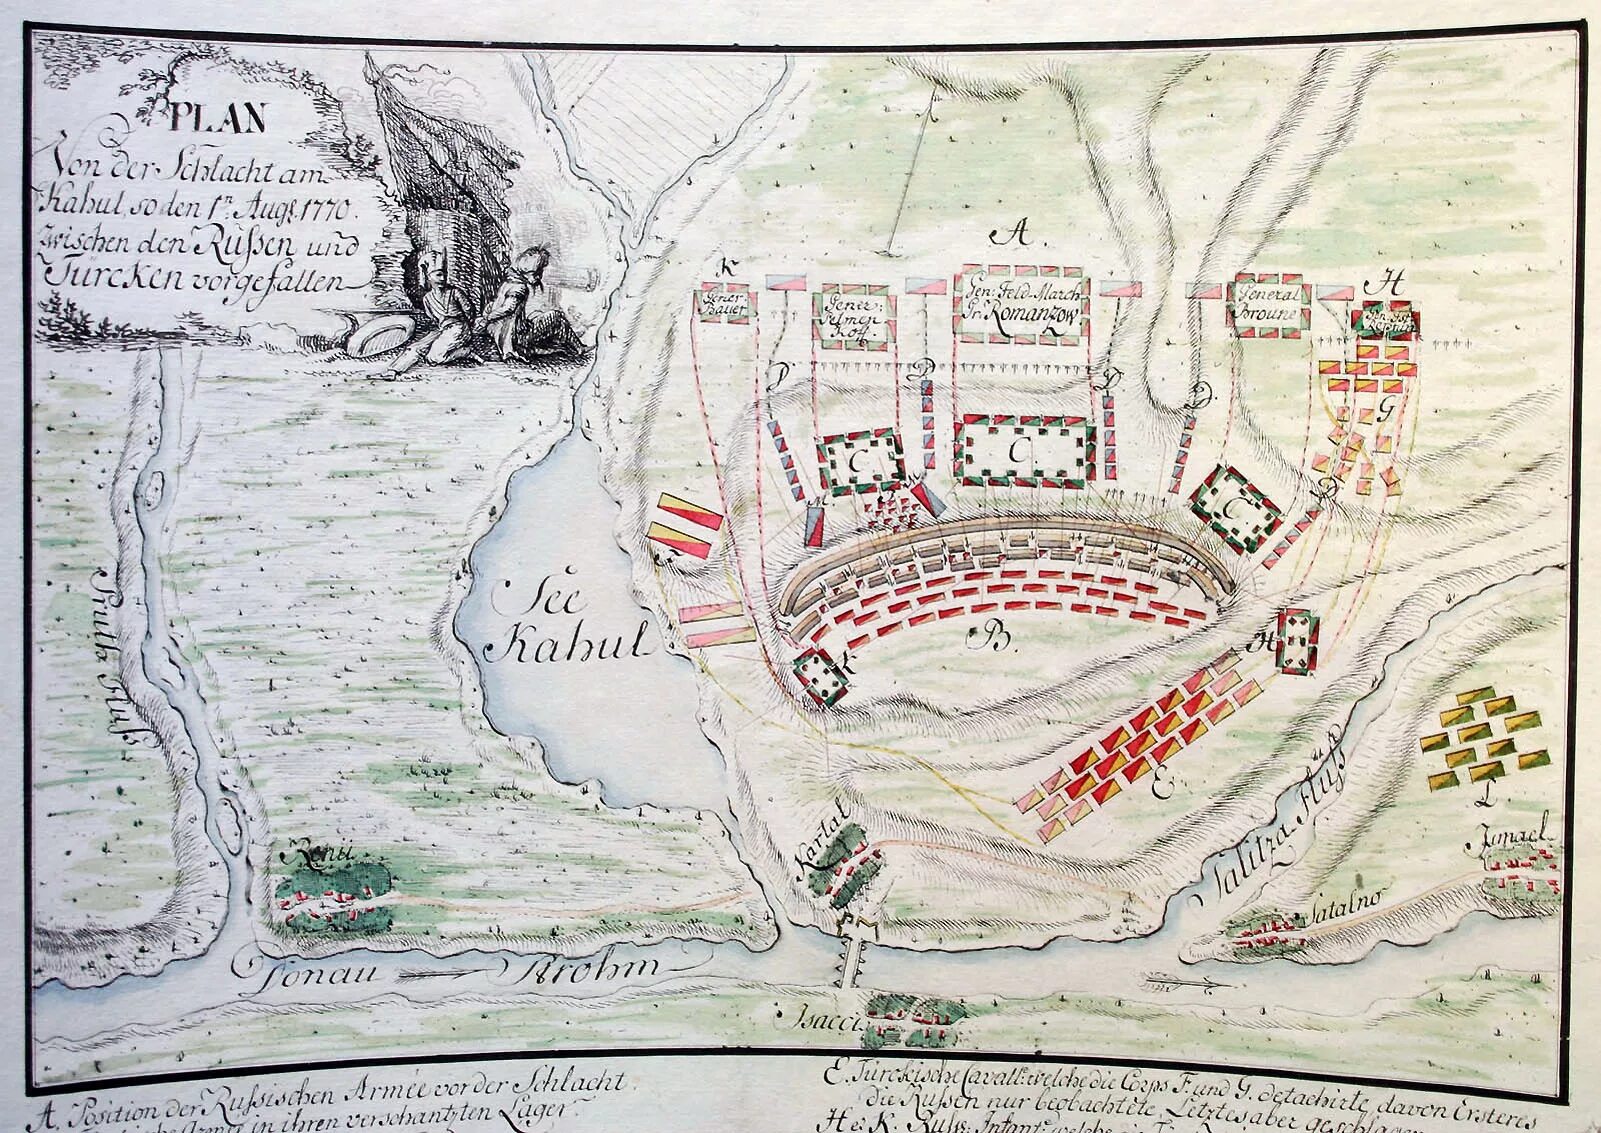 PLAN
Von der Schlacht am
Kahul, so den 1ⁿ Aug. 1770.
zwischen den Rußen und
Türcken vorgefallen
A.
K
H
Gener
Bauer
Gener:
Gen: Feld-March
Gr. Romanzow
General
D
D
D
D
G
C
C
C
D
M
B.
H
K
See
Kahul
Pruth Fluß
E.
L.
Reni
Kartal
Jsmael
Salitza Fluß
Satalno
Donau Strohm
Jsacci
A. Position der Rußischen Armée vor der Schlacht.
Armée in ihren verschantzten Lager
E. Türckische Cavall: welche die Corps F. und G. detachirte, davon Ersteres
die Rußen nur beobachtete, Letztes aber geschlagen
H et K. Ruß: Infant: welche